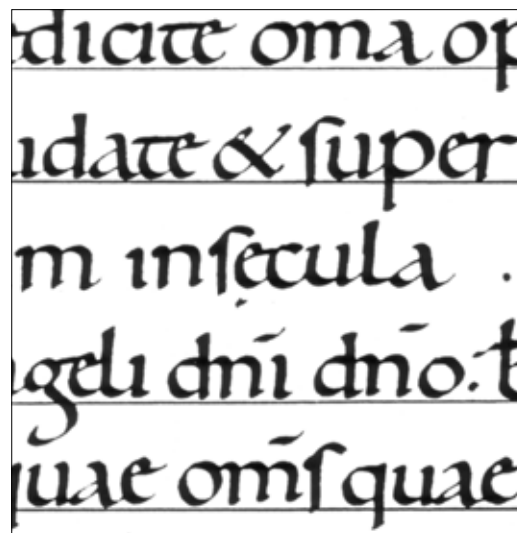 edicite oma op
udate & ſuper
m inſęcula .
ngeli dnī dnō: b
quae om̄ſ quae